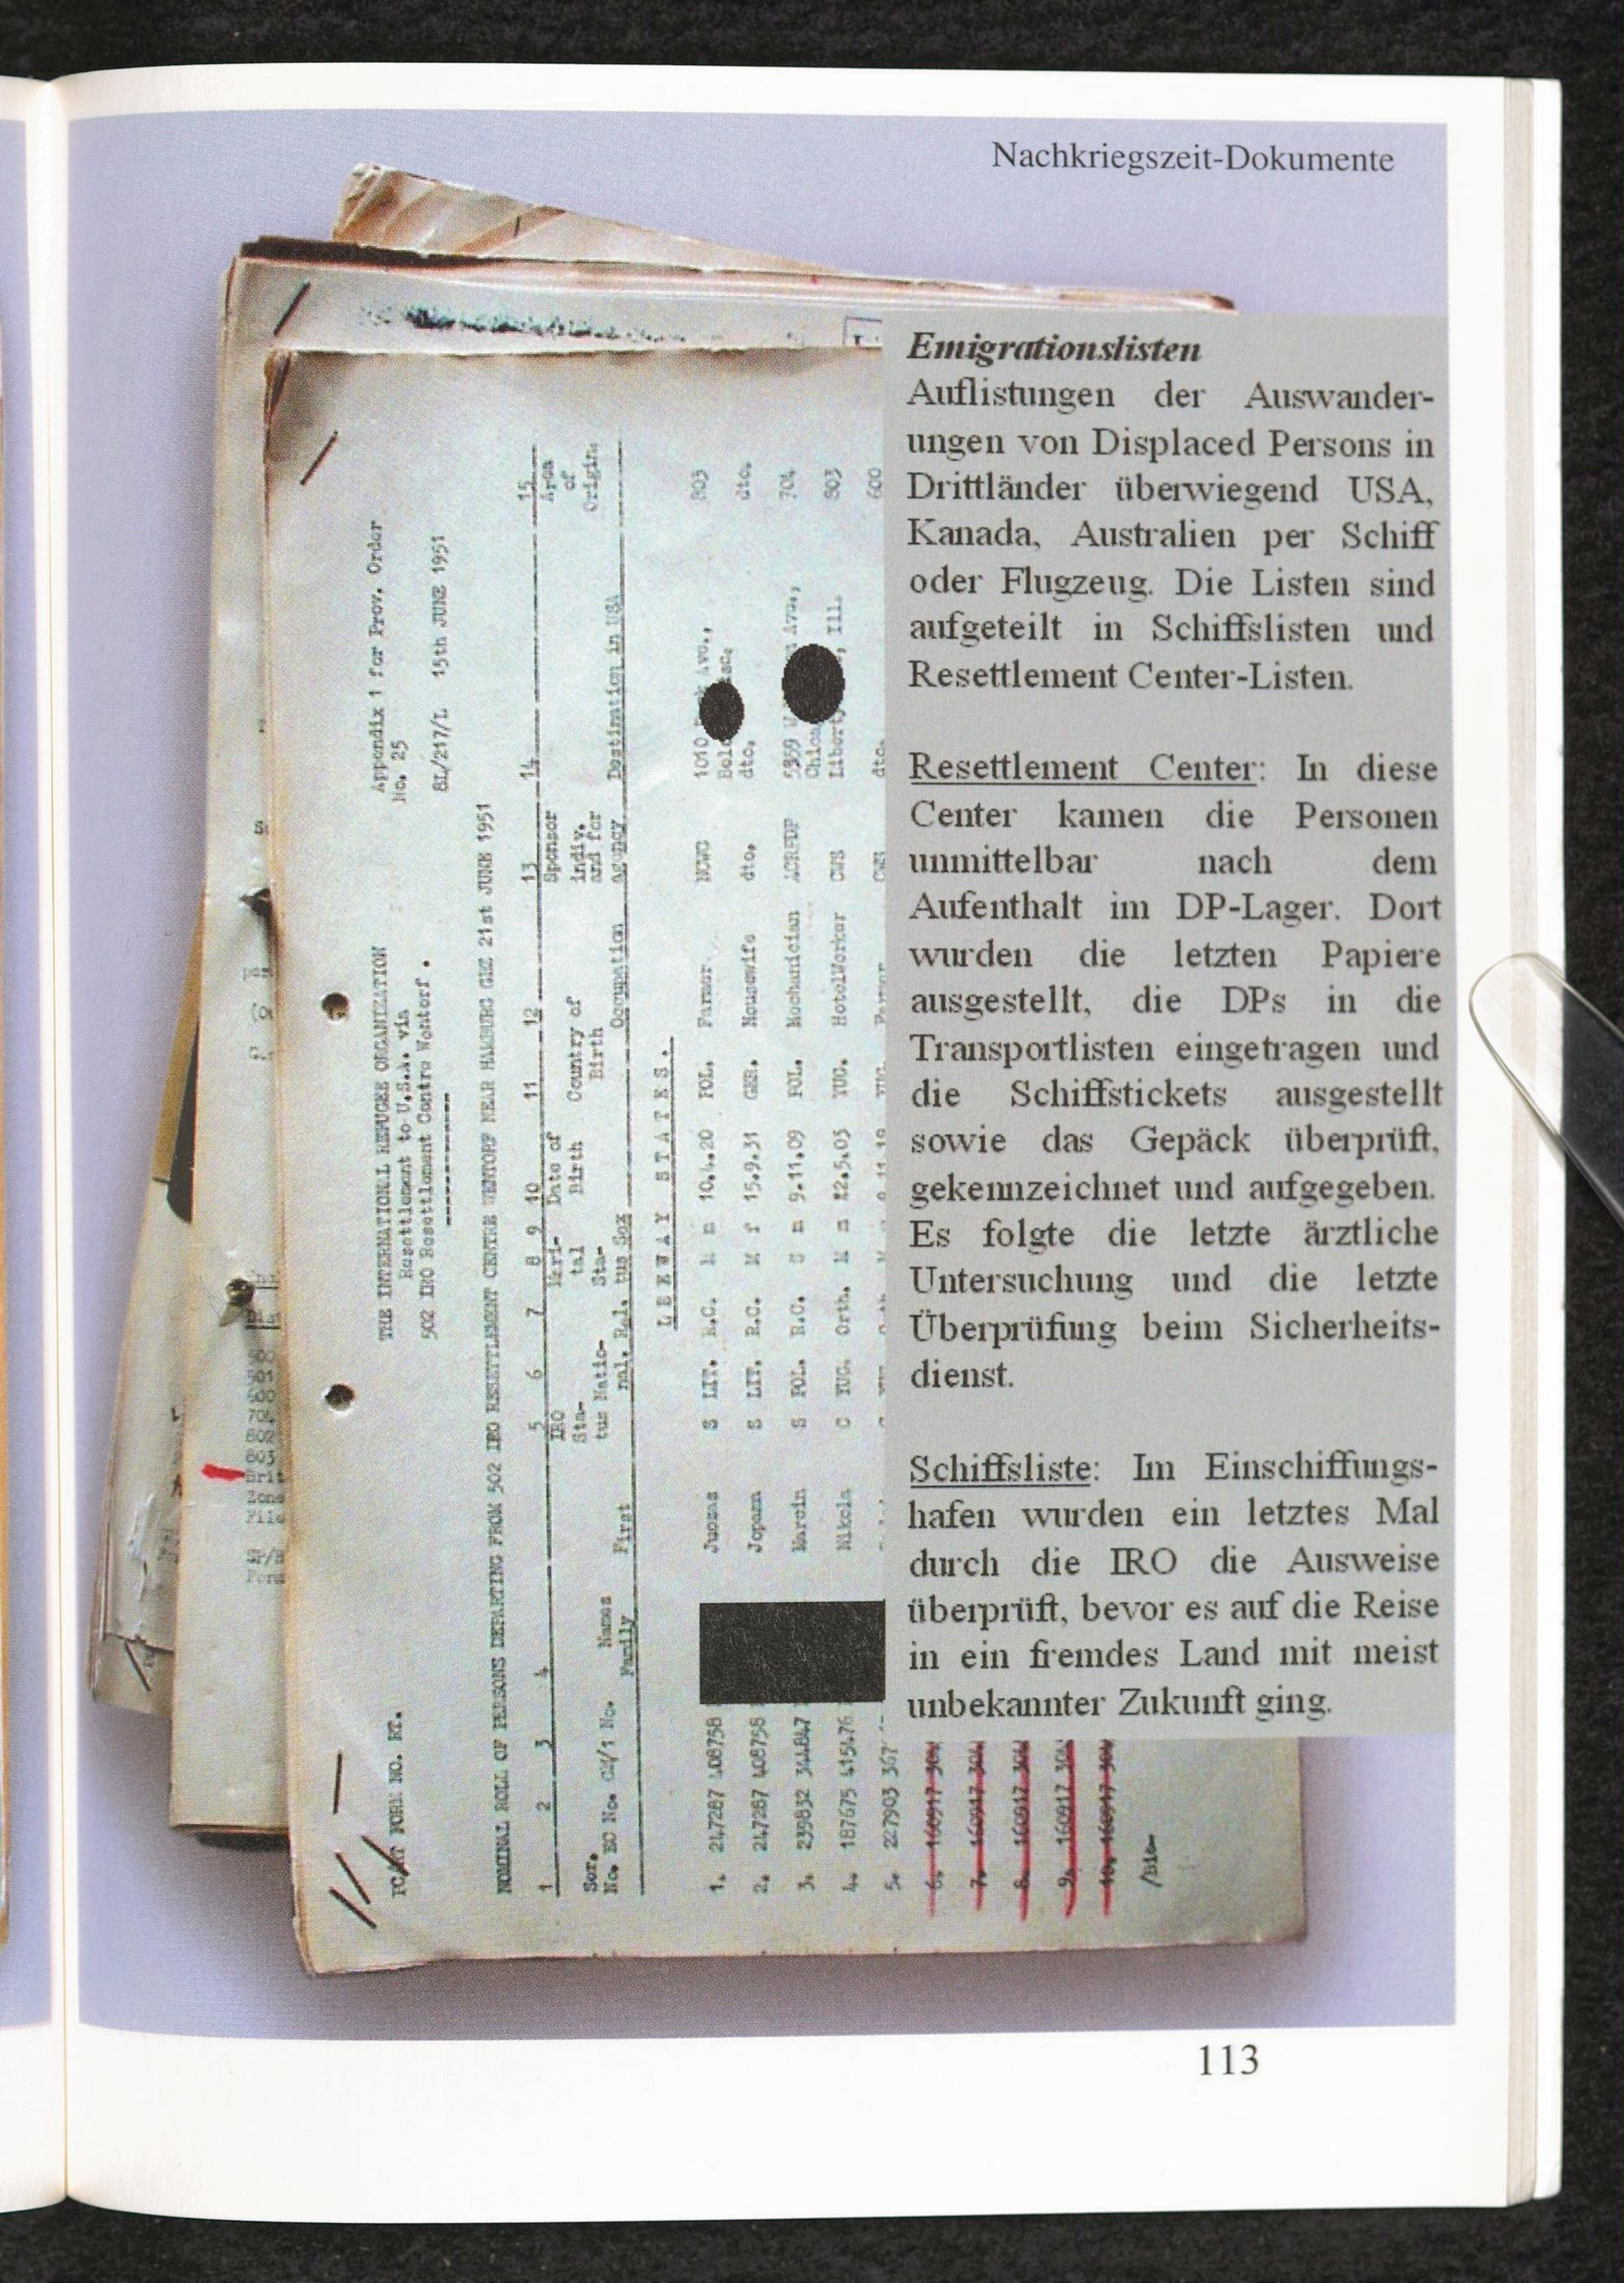 Nachkriegszeit-Dokumente
Emigrationslisten
Auflistungen der Auswander-
ungen von Displaced Persons in
Drittländer überwiegend USA,
Kanada, Australien per Schiff
oder Flugzeug. Die Listen sind
aufgeteilt in Schiffslisten und
Resettlement Center-Listen.
Resettlement Center: In diese
Center kamen die Personen
unmittelbar nach dem
Aufenthalt im DP-Lager. Dort
wurden die letzten Papiere
ausgestellt, die DPs in die
Transportlisten eingetragen und
die Schiffstickets ausgestellt
sowie das Gepäck überprüft,
gekennzeichnet und aufgegeben.
Es folgte die letzte ärztliche
Untersuchung und die letzte
Überprüfung beim Sicherheits-
dienst.
Schiffsliste: Im Einschiffungs-
hafen wurden ein letztes Mal
durch die IRO die Ausweise
überprüft, bevor es auf die Reise
in ein fremdes Land mit meist
unbekannter Zukunft ging.
FORM NO. RT.
THE INTERNATIONAL REFUGEE ORGANIZATION
Resettlement to U.S.A. via
502 IRO Resettlement Centre Wentorf.
Appendix 1 for Prov. Order
No. 25
8L/217/L 15th JUNE 1951
NOMINAL ROLL OF PERSONS DEPARTING FROM 502 IRO RESETTLEMENT CENTRE WENTORF NEAR HAMBURG ON 21st JUNE 1951
1 2 3 4 5 6 7 8 9 10 11 12 13 14 15
Ser. No. EC No. CM/1 No. Names Family First IRO Status National. Rel. Marital Status Sex Date of Birth Country of Birth Occupation Sponsor indiv. and for agency Destination in USA Area of Origin.
LEEWAY STATES.
1. 247287 408758 Juozas S LIT. R.C. M m 10.4.20 POL. Farmer NCWC 1010 Ave., 803
2. 247287 408758 S LIT. R.C. M f 15.9.31 GER. Housewife dto. dto. dto.
3. 239832 344847 Marcin S POL. R.C. S m 9.11.09 POL. Mechanician ACRFDP 5359 Ave., 704
4. 187675 415476 Nikola C YUG. Orth. M m 22.5.03 YUG. HotelWorker CWS Ill. 803
5. 227903 dto. 600
6. 160917
7. 160917
8. 160917
9. 160917
10. 160917
500
501
600
704
802
803
Brit
Zone
File
113